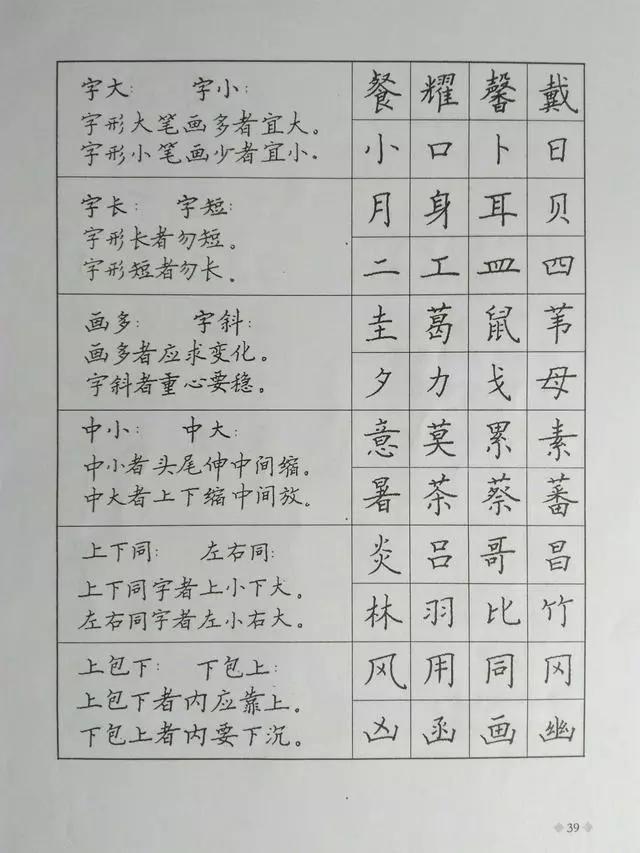 字大： 字小：
字形大笔画多者宜大。
字形小笔画少者宜小.
餐 耀 馨 戴
小 口 卜 日
字长： 字短：
字形长者勿短。
字形短者勿长.
月 身 耳 贝
二 工 皿 四
画多： 字斜：
画多者应求变化。
字斜者重心要稳。
圭 葛 鼠 苇
夕 力 戈 母
中小： 中大：
中小者头尾伸中间缩。
中大者上下缩中间放。
意 莫 累 素
暑 茶 蔡 蕃
上下同： 左右同：
上下同字者上小下大。
左右同字者左小右大。
炎 吕 哥 昌
林 羽 比 竹
上包下： 下包上：
上包下者内应靠上。
下包上者内要下沉。
风 用 同 冈
凶 函 画 幽
39